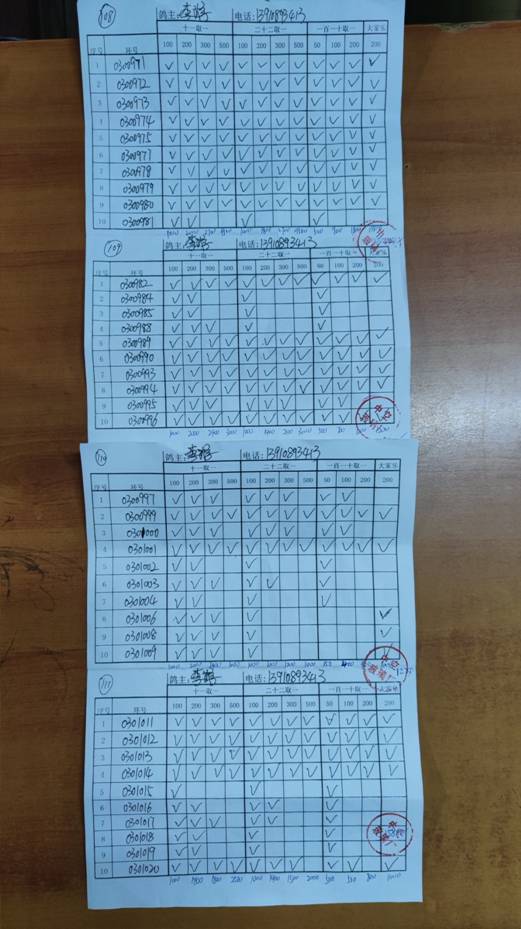 108 鸽主: 电话: 13910893413
十一取一 二十二取一 一百一十取一 大家乐
序号 环号 100 200 300 500 100 200 300 500 50 100 200 200
1 0300971 ✓ ✓ ✓ ✓ ✓ ✓ ✓ ✓ ✓ ✓ ✓ ✓
2 0300972 ✓ ✓ ✓ ✓ ✓ ✓ ✓ ✓ ✓ ✓ ✓ ✓
3 0300973 ✓ ✓ ✓ ✓ ✓ ✓ ✓ ✓ ✓ ✓ ✓ ✓
4 0300974 ✓ ✓ ✓ ✓ ✓ ✓ ✓ ✓ ✓ ✓ ✓ ✓
5 0300975 ✓ ✓ ✓ ✓ ✓ ✓ ✓ ✓ ✓ ✓ ✓ ✓
6 0300977 ✓ ✓ ✓ ✓ ✓ ✓ ✓ ✓ ✓ ✓ ✓ ✓
7 0300978 ✓ ✓ ✓ ✓ ✓ ✓ ✓ ✓ ✓ ✓ ✓ ✓
8 0300979 ✓ ✓ ✓ ✓ ✓ ✓ ✓ ✓ ✓ ✓ ✓ ✓
9 0300980 ✓ ✓ ✓ ✓ ✓ ✓ ✓ ✓ ✓ ✓ ✓ ✓
10 0300981 ✓ ✓ ✓ ✓
109 鸽主: 电话: 13910893413
十一取一 二十二取一 一百一十取一
序号 环号 100 200 300 500 100 200 300 500 50 100 200 200
1 0300982 ✓ ✓ ✓ ✓ ✓ ✓ ✓ ✓ ✓ ✓ ✓ ✓
2 0300984 ✓ ✓ ✓ ✓
3 0300985 ✓ ✓ ✓ ✓
4 0300988 ✓ ✓ ✓ ✓ ✓
5 0300989 ✓ ✓ ✓ ✓ ✓ ✓ ✓ ✓ ✓ ✓ ✓ ✓
6 0300990 ✓ ✓ ✓ ✓ ✓ ✓ ✓ ✓ ✓ ✓ ✓ ✓
7 0300993 ✓ ✓ ✓ ✓ ✓ ✓ ✓ ✓ ✓ ✓ ✓ ✓
8 0300994 ✓ ✓ ✓ ✓ ✓ ✓ ✓ ✓ ✓ ✓ ✓ ✓
9 0300995 ✓ ✓ ✓ ✓ ✓ ✓ ✓
10 0300996 ✓ ✓ ✓ ✓ ✓ ✓ ✓ ✓ ✓ ✓ ✓ ✓
110 鸽主: 电话: 13910893413
十一取一 二十二取一 一百一十取一 大家乐
序号 环号 100 200 300 500 100 200 300 500 50 100 200 200
1 0300997 ✓ ✓ ✓ ✓ ✓ ✓ ✓ ✓
2 0300999 ✓ ✓ ✓ ✓ ✓ ✓ ✓ ✓ ✓ ✓ ✓ ✓
3 0301000 ✓ ✓ ✓ ✓ ✓ ✓ ✓ ✓
4 0301001 ✓ ✓ ✓ ✓ ✓ ✓ ✓ ✓ ✓ ✓ ✓ ✓
5 0301002 ✓ ✓ ✓ ✓
6 0301003 ✓ ✓ ✓ ✓ ✓ ✓
7 0301004 ✓ ✓ ✓ ✓
8 0301006 ✓ ✓ ✓ ✓ ✓
9 0301008 ✓ ✓ ✓ ✓ ✓
10 0301009 ✓ ✓ ✓ ✓ ✓
111 鸽主: 电话: 13910893413
十一取一 二十二取一 一百一十取一
序号 环号 100 200 300 500 100 200 300 500 50 100 200 200
1 0301011 ✓ ✓ ✓ ✓ ✓ ✓ ✓ ✓ ✓ ✓ ✓ ✓
2 0301012 ✓ ✓ ✓ ✓ ✓ ✓ ✓ ✓ ✓ ✓ ✓ ✓
3 0301013 ✓ ✓ ✓ ✓ ✓ ✓ ✓ ✓ ✓ ✓ ✓ ✓
4 0301014 ✓ ✓ ✓ ✓ ✓ ✓ ✓ ✓ ✓ ✓ ✓ ✓
5 0301015 ✓ ✓ ✓
6 0301016 ✓ ✓ ✓ ✓ ✓
7 0301017 ✓ ✓ ✓ ✓ ✓ ✓
8 0301018 ✓ ✓ ✓ ✓
9 0301019 ✓ ✓ ✓ ✓
10 0301020 ✓ ✓ ✓ ✓ ✓ ✓ ✓ ✓ ✓ ✓ ✓ ✓